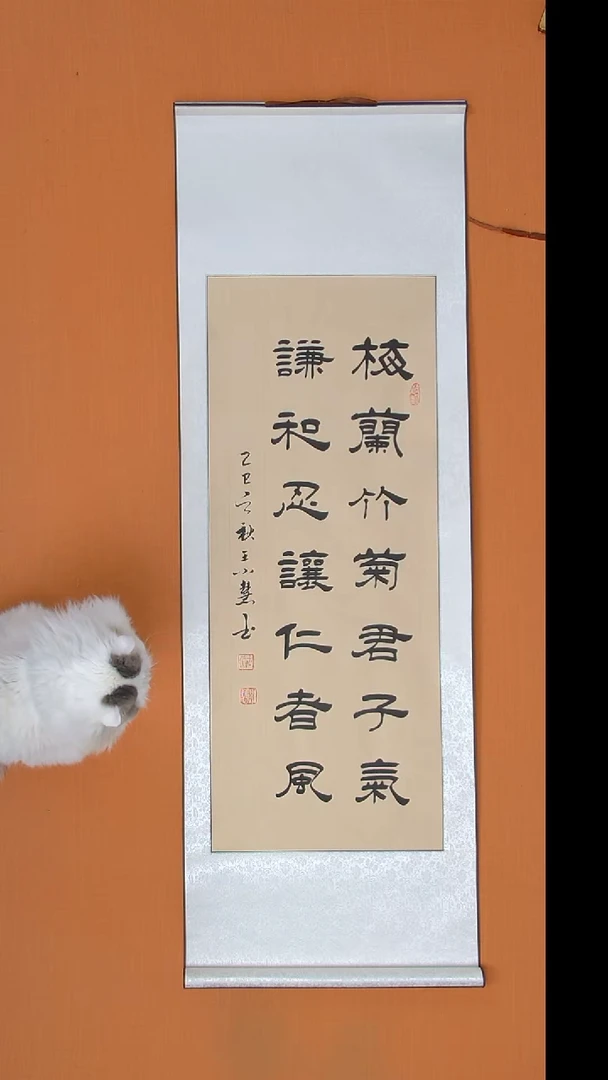 梅蘭竹菊君子氣
謙和忍讓仁者風
乙巳之秋王小慧书